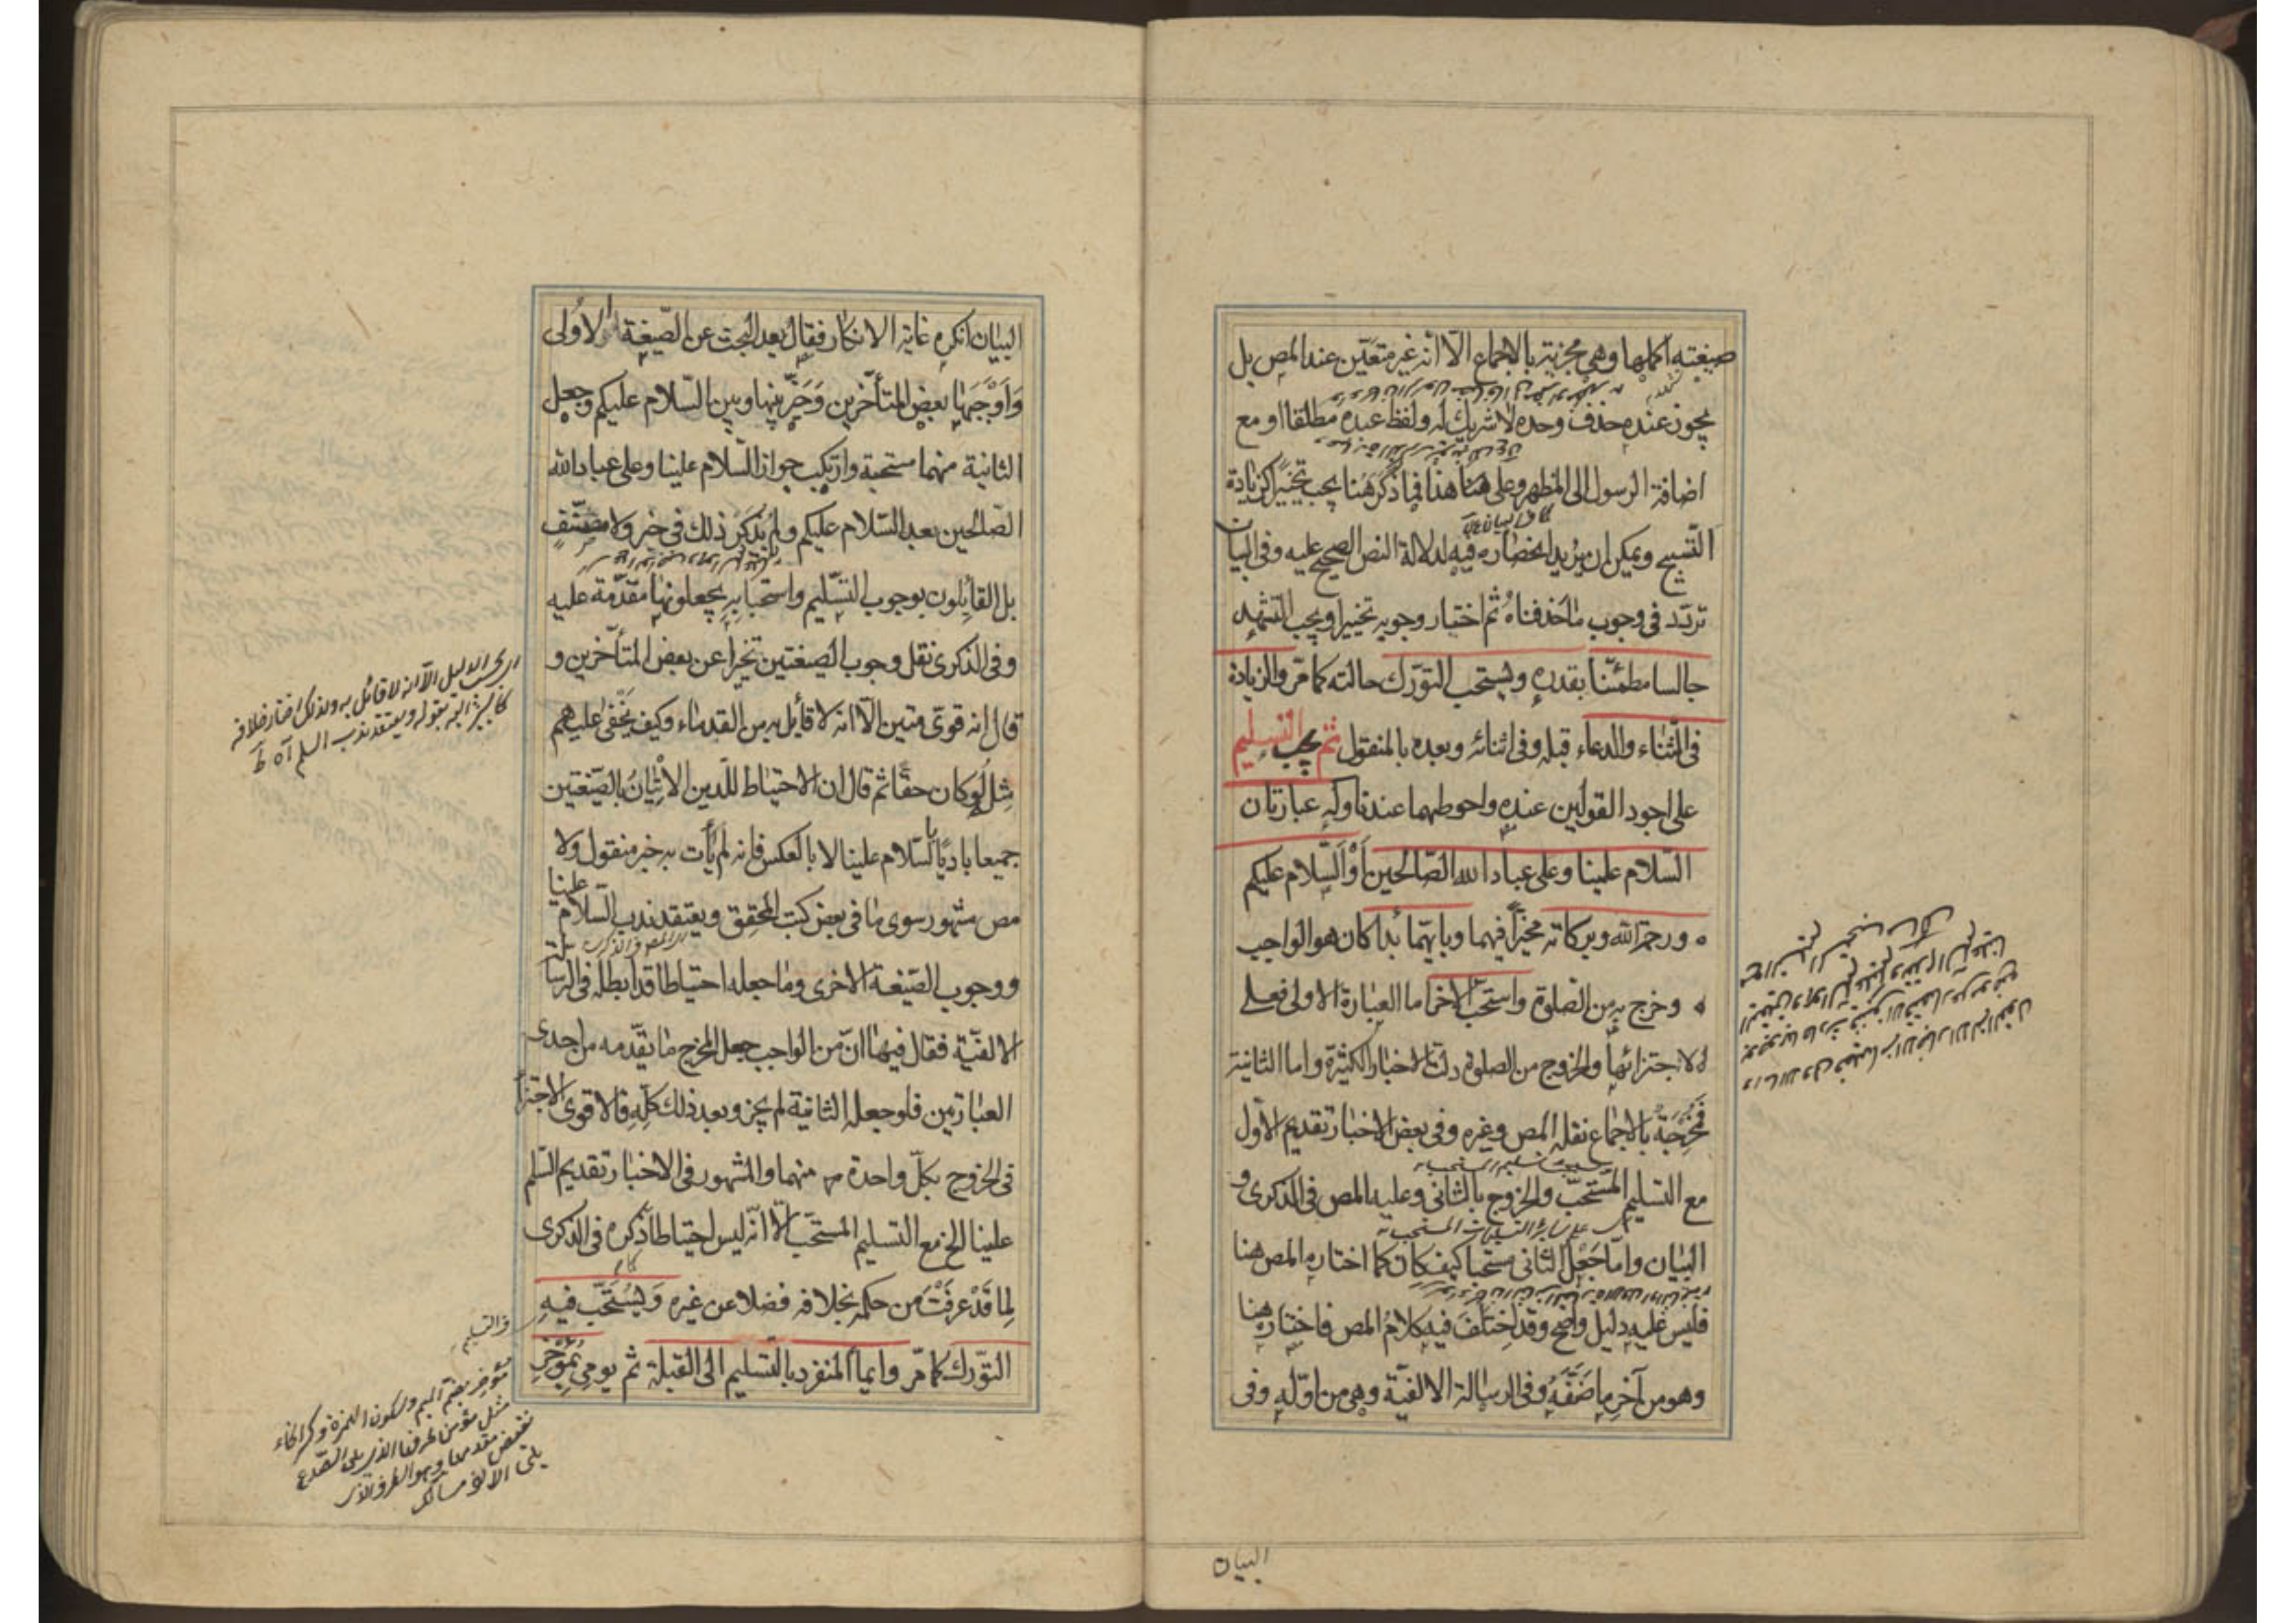 صيغته اكملها وهي مجزية بالاجماع الّا انه غير متعيّن عند المص بل
يجوز عنده حذف وحده لا شريك له ولفظ عبده مطلقا او مع
اضافة الرسول الى المظهر وعلى هنا هذا فما ذكر هنا يجب تخيير كزيادة
التّسبيح ويمكن ان يريد انحصاره فيه لدلالة النص الصحيح عليه وفى البيان
تردّد فى وجوب ما حذفناه ثم اختار وجوبه تخييرا ويجب التشهد
جالسا مطمئنّا بقدره ويستحب التورّك حالته كما مرّ والزيادة
فى الثناء والدعاء قبله وفى اثنائه وبعده بالمنقول ثم يجب التسليم
على اجود القولين عنده واحوطهما عندنا وله عبارتان
السّلام علينا وعلى عباد الله الصّالحين أو السّلام عليكم
ورحمة الله وبركاته مخيّراً فيهما وبايّهما بدأ كان هو الواجب
وخرج به من الصلوة واستحب الاخر اما العبارة الاولى فعلى
الاجتزاء بها والخروج من الصلوة دلت الاخبار الكثيرة واما الثانية
فمخرجة بالاجماع نقله المص وغيره وفى بعض الاخبار تقديم الاوّل
مع التسليم المستحبّ والخروج بالثانى وعليه المص فى الذكرى و
البيان وامّا جَعْل الثانى مستحبا كيف كان كما اختاره المص هنا
فليس عليه دليل واضح وقد اختلف فيه كلام المص فاختاره هنا
وهو من آخر ما صنّفه وفى الرسالة الالفيّة وهى من اوّله وفى
البيان
البيان انكره غاية الانكار فقال بعد البحث عن الصّيغة الاولى
وَاَوْجَبَها بعض المتأخّرين وَخَيّر بينها وبين السّلام عليكم وجعل
الثانية منهما مستحبة وارتكب جواز السّلام علينا وعلى عباد الله
الصّالحين بعد السّلام عليكم ولم يذكر ذلك فى خبر ولا مصنّف
بل القائلون بوجوب التسّليم واستحبابه يجعلونها مقدّمة عليه
وفى الذكرى نقل وجوب الصيغتين تخييراً عن بعض المتأخّرين و
قال انه قوىّ متين الّا انه لا قائل به من القدماء وكيف يَخْفى عليهم
مِثلهُ لو كان حقّا ثم قال ان الاحتياط للدّين الاتْيانُ بالصّيغتين
جميعا باديًا بالسّلام علينا لا بالعكس فانه لم يأت به خبر منقول ولا
مص مشهور سوى ما فى بعض كتب المحقق ويعتقد ندب السّلام علينا
ووجوب الصّيغة الاخرى وما جعله احتياطا قد ابطله فى الرسالة
الالفيّة فقال فيها انّ من الواجب جعل المخرج ما يقدّمه من احدى
العبارتين فلو جعله الثانية لم يجز وبعد ذلك كلّه فالاقوى الاجتزأ
فى الخروج بكلّ واحدة منهما والمشهور فى الاخبار تقديم السّلم
علينا الخ مع التسليم المستحبّ الّا انّه ليس احتياطا كما ذكره فى الذكرى
لِما قَدْ عرفتَ من حكمه بخلافه فضلا عن غيره وَيُسْتَحَبّ فيه
التّورّك كما مّر وايماأ المنفرد بالتسليم الى القبلة ثم يومى بمُؤْخِرِ
اى بحسب الدليل الّا انه لا قائل به ولذلك اختار خلافه
مؤخر بضم الميم وسكون الهمزة وكسر الخاء
مثل مؤمن طرفها الذى يلى الصّدغ
نقيض مقدمها وهو الطرف الذى
يلى الانف مسالك